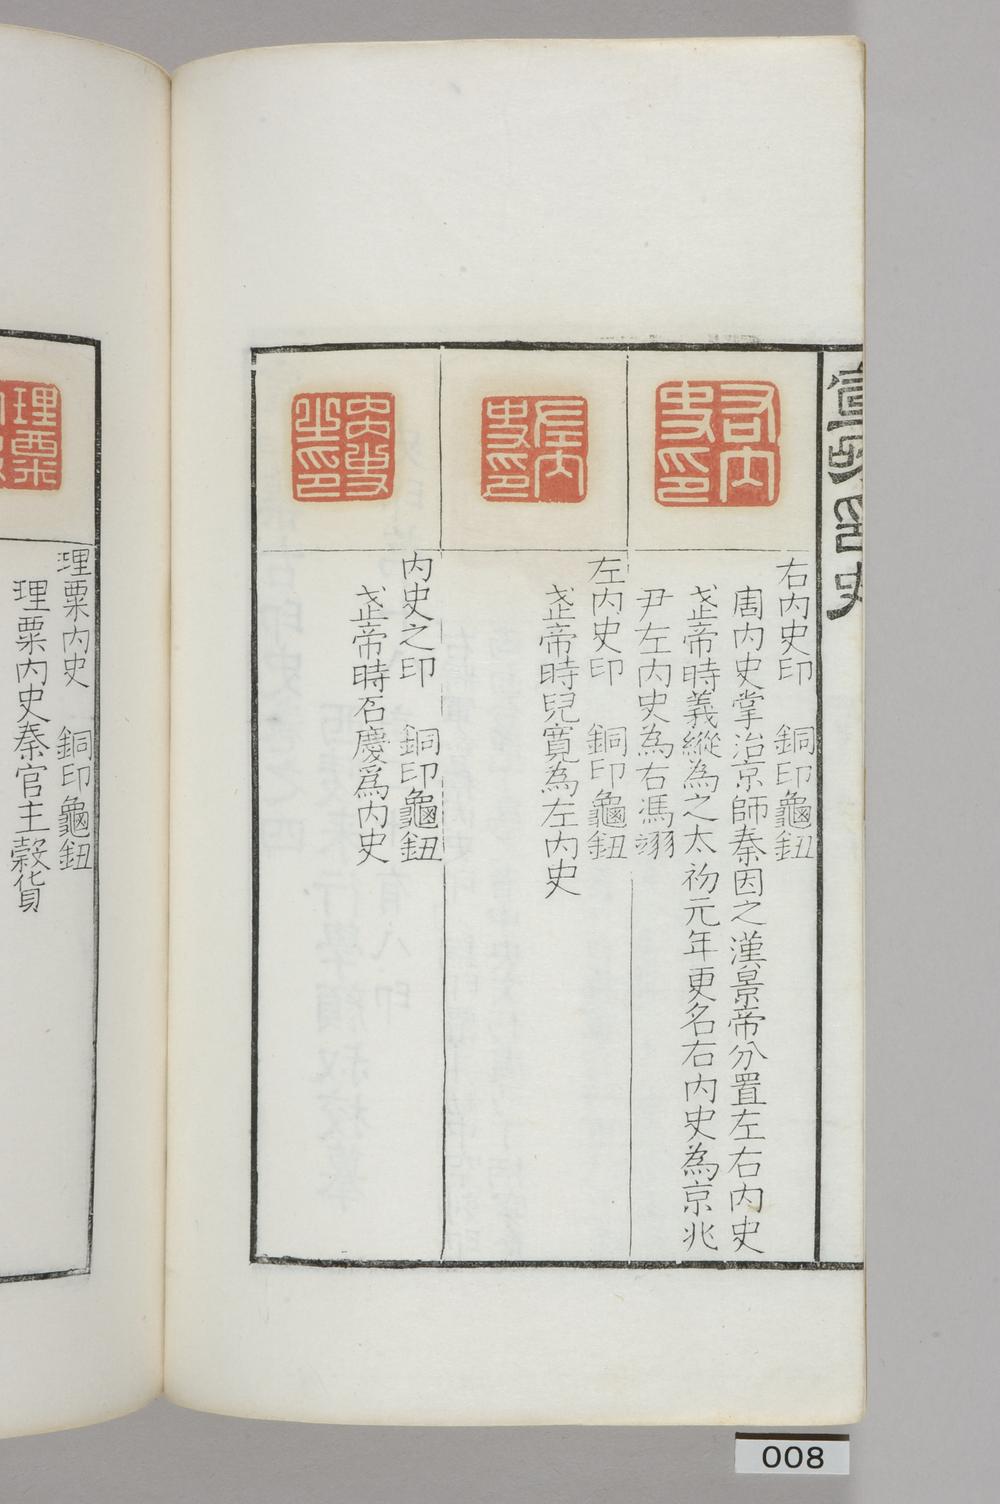 右內史印
右內史印　銅印龜鈕
周內史掌治京師秦因之漢景帝分置左右內史
武帝時義縱為之太初元年更名右內史為京兆
尹左內史為右馮翊
左內史印
左內史印　銅印龜鈕
武帝時兒寬為左內史
內史之印
內史之印　銅印龜鈕
武帝時石慶爲內史
理粟
理粟內史　銅印龜鈕
理粟內史秦官主穀貨
008